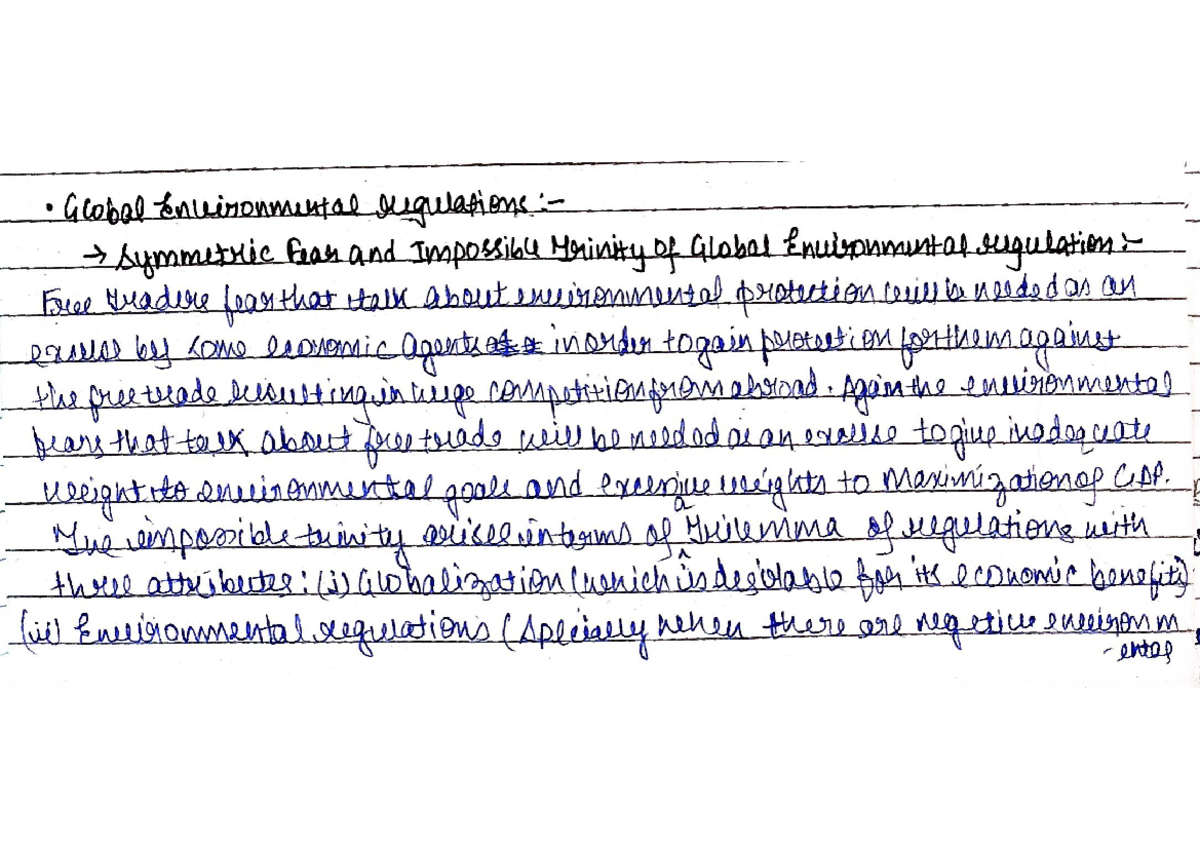 • Global Environmental regulations :-
→ Symmetric Fear and Impossible Trinity of Global Environmental regulation :-
Free traders fear that talk about environmental protection will be needed as an
excuse by some economic agents in order to gain protection for them against
the free trade resulting in huge competition from abroad. Again the environmental
fears that talk about free trade will be needed as an excuse to give inadequate
weight to environmental goals and excessive weights to Maximization of GDP.
The impossible trinity arises in terms of a Trilemma of regulations with
three attributes : (i) Globalization (which is desirable for its economic benefits)
(ii) Environmental regulations (specially when there are negetive environm
-ental